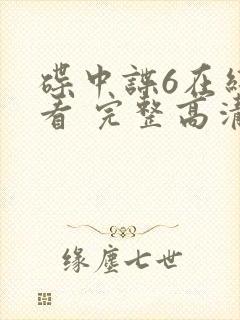 碟中諜6在
看 完整高清
缘塵七世